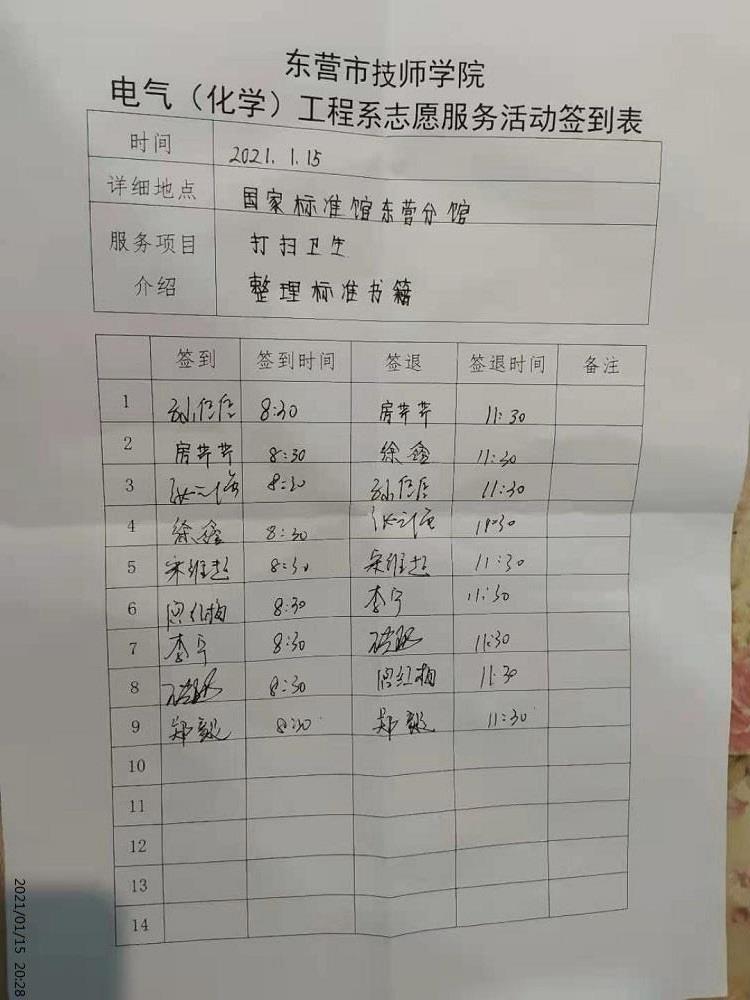 东营市技师学院
电气（化学）工程系志愿服务活动签到表
时间 2021.1.15
详细地点 国家标准馆东营分馆
服务项目 打扫卫生
介绍 整理标准书籍
签到 签到时间 签退 签退时间 备注
1 8:30 房芹芹 11:30
2 房芹芹 8:30 徐鑫 11:30
3 8:30 11:30
4 徐鑫 8:30 11:30
5 宋维超 8:30 宋维超 11:30
6 闫红梅 8:30 李宁 11:30
7 李宁 8:30 11:30
8 8:30 闫红梅 11:30
9 郑毅 8:30 郑毅 11:30
10
11
12
13
14
2021/01/15 20:28